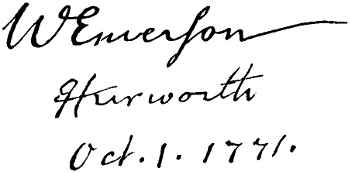 WEmerson
Hurworth
Oct. 1. 1771.